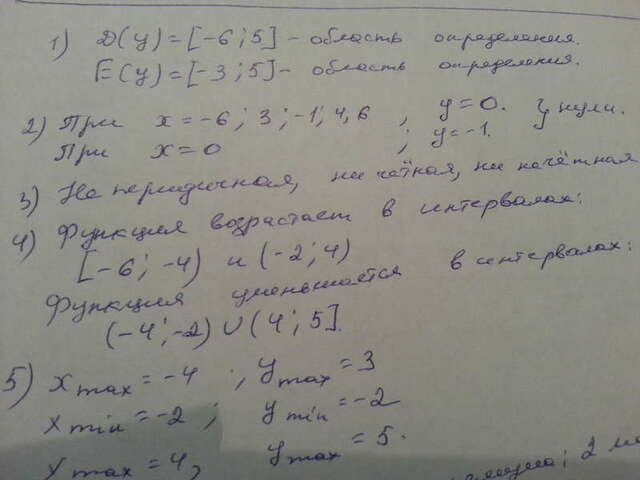 1) D(y) = [-6; 5] - область определения.
E(y) = [-3; 5] - область определения.
2) При x = -6; 3; -1; 4,6 , y = 0. } нули.
При x = 0 ; y = -1.
3) Не периодичная, ни чётная, ни нечётная
4) Функция возрастает в интервалах:
[-6; -4) и (-2; 4)
Функция уменьшается в интервалах:
(-4; -2) U (4; 5].
5) x max = -4 ; y max = 3
x min = -2 ; y min = -2
x max = 4, y max = 5.
; 2